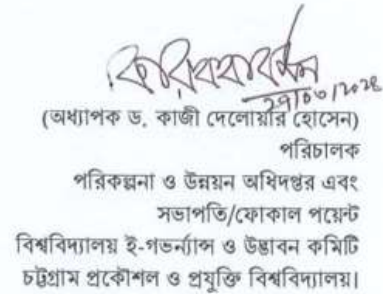 (অধ্যাপক ড. কাজী দেলোয়ার হোসেন)
পরিচালক
পরিকল্পনা ও উন্নয়ন অধিদপ্তর এবং
সভাপতি/ফোকাল পয়েন্ট
বিশ্ববিদ্যালয় ই-গভর্ন্যান্স ও উদ্ভাবন কমিটি
চট্টগ্রাম প্রকৌশল ও প্রযুক্তি বিশ্ববিদ্যালয়।